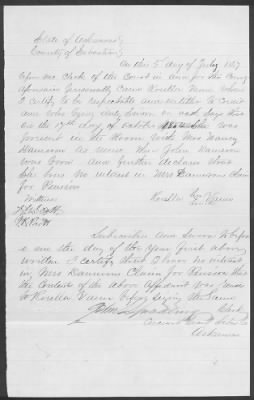 State of Arkansas
County of Sebastian
On this 5 day of July 1867
before me Clerk of the Court in and for the County
aforesaid Personally Came Rosella Vann whom
I certify to be respectable and entitled to Credit
and who being duly Sworn on oath Says that
on the 17th day of October was
present in the Room with Mrs Nancy
Damron as nurse when John Damron
was born and further declare that
She has no interest in Mrs Damrons claim
for Pension
Witness
Rosella her x Vann
Subscribed and Sworn to before
me the day & the year first above
written & I certify that I have no interest
in Mrs Damrons Claim for Pension that
the Contents of the above affidavit was
to Rosella Vann before signing the same
John Spradling Clerk
Circuit Court
Arkansas